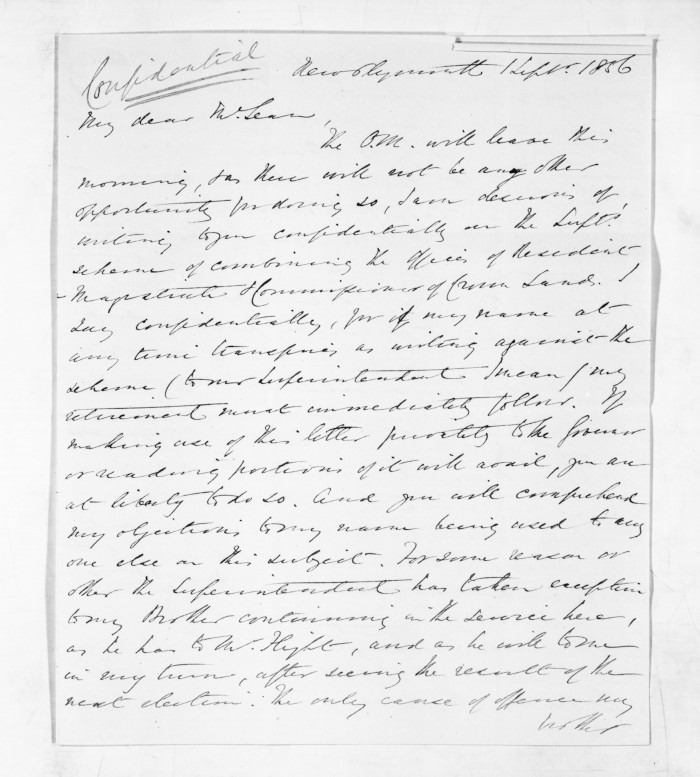 Confidential
New Plymouth 1 Septr. 1856
My dear McLean,
The O.M. will leave this
morning, & as there will not be any other
opportunity for doing so, I am desirous of
writing to you confidentially on the Supts.
scheme of combining the offices of Resident
Magistrate & Commissioner of Crown Lands. I
say confidentially, for if my name at
any time transpires as writing against the
scheme (to our Superintendent I mean) my
retirement must immediately follow. If
making use of this letter privately to the Governor
or reading portions of it will avail, you are
at liberty to do so. And you will comprehend
my objections to my name being used to any
one else on this subject. For some reason or
other the Superintendent has taken exception
to my Brother continuing in the service here,
as he has to Mr. Flight, and as he will to me
in my turn, after seeing the result of the
next election. The only cause of offence my
brother